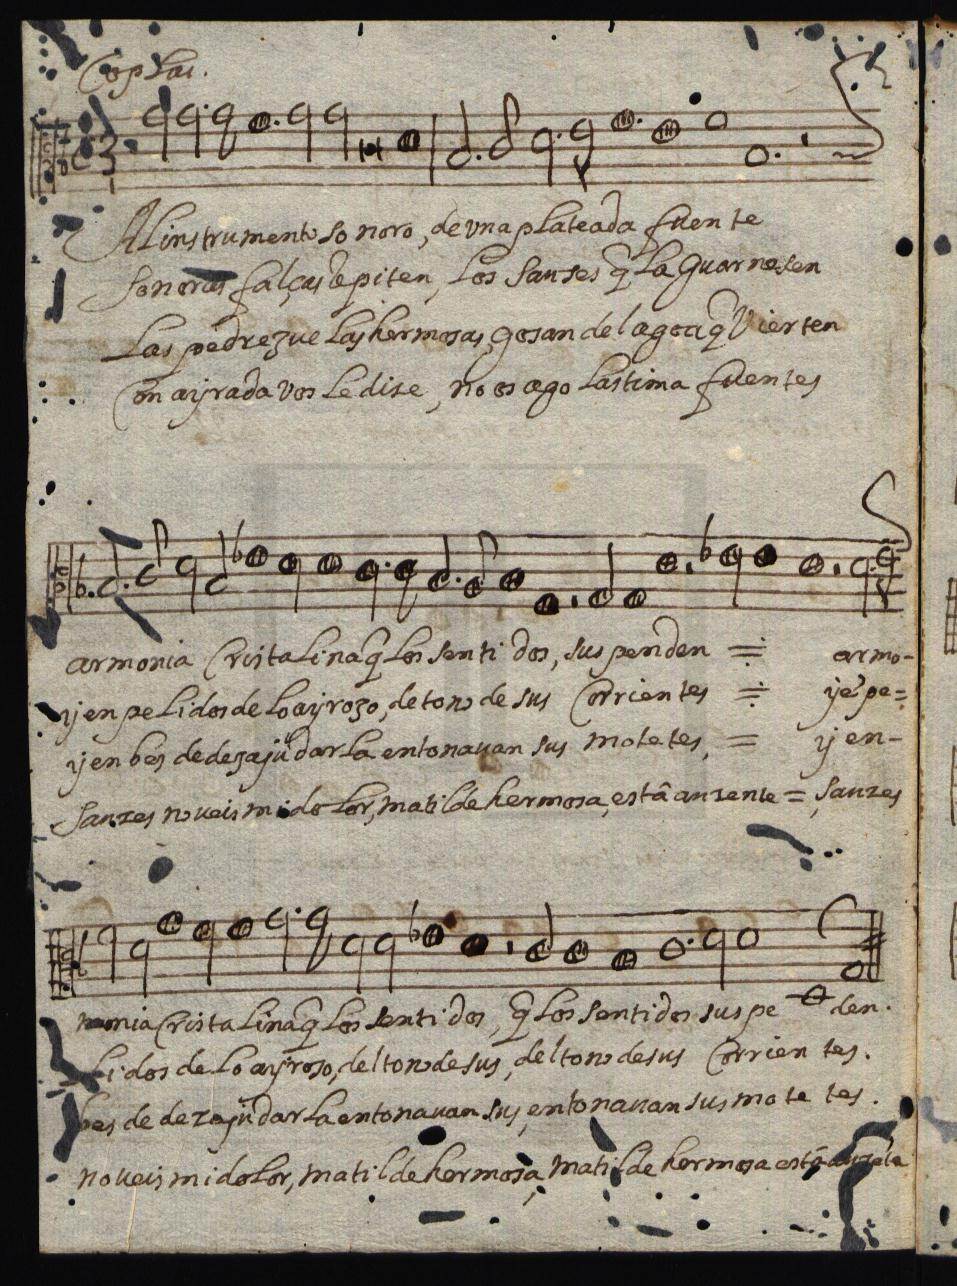 Coplas.
Al instrumento sonoro, de vna plateada fuente
sonoras falças repiten, los sauses q̃ la guarnesen
Las pedrezuelas hermosas, gosan del agoa q̃ Vierten
Con ayrada vos le dise, no os ago lastima fuentes
armonia Cristalina q̃ los sentidos, suspenden armo-
y en pelidos de lo ayrozo, de tono de sus Corrientes y ẽ pe=
y en bes de dezajũdar la entonauan sus motetes, y en-
sauzes no veis mi dolor, matilde hermosa, estâ auzente = sauzes
monia Cristalina q̃ los sentidos, q̃ los sentidos suspe den.
lidos de lo ayroso, del tono de sus, del tono de sus Corrientes.
bes de dezajũdar la entonauan sus, entonauan sus motetes.
no veis mi dolor, matilde hermosa, matilde hermosa estâ